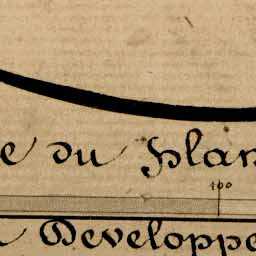 e du plan
100
Developpe